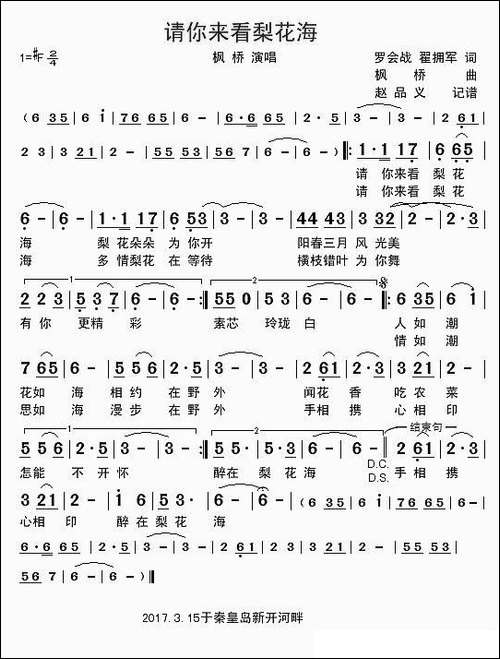 请你来看梨花海
1=#F 2/4
枫 桥 演唱
罗会战 翟拥军 词
枫 桥 曲
赵 品 义 记谱
( 6 35 | 6 i | 176 65 | 6 - | 6·6 65 | 2·5 | 3 - | 3 - | 2 61 |
2 3 | 3 21 | 2 - | 55 53 | 56 7 | 6 - | 6 - ) ‖: 1·1 17 | 6 65 |
请 你来看 梨 花
请 你来看 梨 花
6 - | 6 - | 1·1 17 | 6 53 | 3 - | 3 - | 44 43 | 3 32 | 2 - | 2·3 |
海 梨 花朵朵 为 你开 阳春三月 风 光美
海 多 情梨花 在 等待 横枝错叶 为 你舞
1 2
2 23 | 5 37 | 6 - | 6 - :‖ 55 0 | 5 50 | 6 - | 6 - ‖: 6 35 | 6 i |
有 你 更精 彩 素芯 玲珑 白 人 如 潮
情 如 潮
7 65 | 6 - | 6·3 | 2·3 | 6 - | 6 - | 2 61 | 2 3 | 3 21 | 2 - |
花如 海 相 约 在 野 外 闻花 香 吃 农 菜
思如 海 漫 步 在 野 外 手相 携 心相 印
1 2 结束句
5 56 | 2·3 | 3 - | 3 - :‖ 2·1 | 6 53· | 6 - | 6 - ‖ 2 61 | 2·3 |
怎能 不 开 怀 醉在 梨 花 海 D.C. 手 相 携
D.S.
3 21 | 2 - | 2·i | 6 | 5 53· | 6 - | 6 - | 6 35 | 6 i | 176 65 | 6 - |
心相 印 醉 在 梨 花 海
6·6 65 | 2·5 | 3 - | 3 - | 2 61 | 2·3 | 3 21 | 2 - | 55 53 |
56 7 | 6 - | 6 - ) ‖
2017.3.15于秦皇岛新开河畔